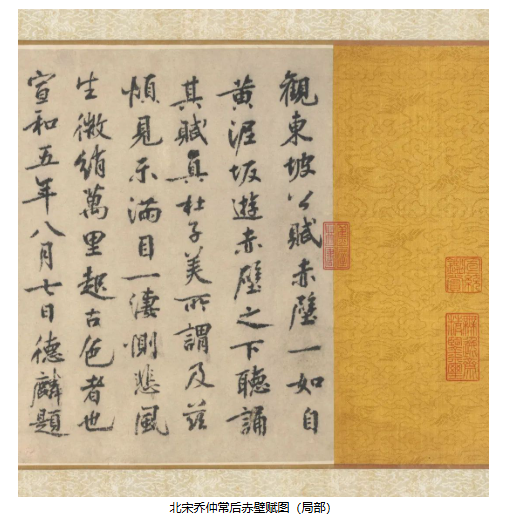 觀東坡公賦赤壁一如自
黄泥坂遊赤壁之下聽誦
其賦真杜子美所謂及茲
煩見示滿目一淒惻悲風
生微綃萬里起古色者也
宣和五年八月七日德麟題
北宋乔仲常后赤壁赋图（局部）